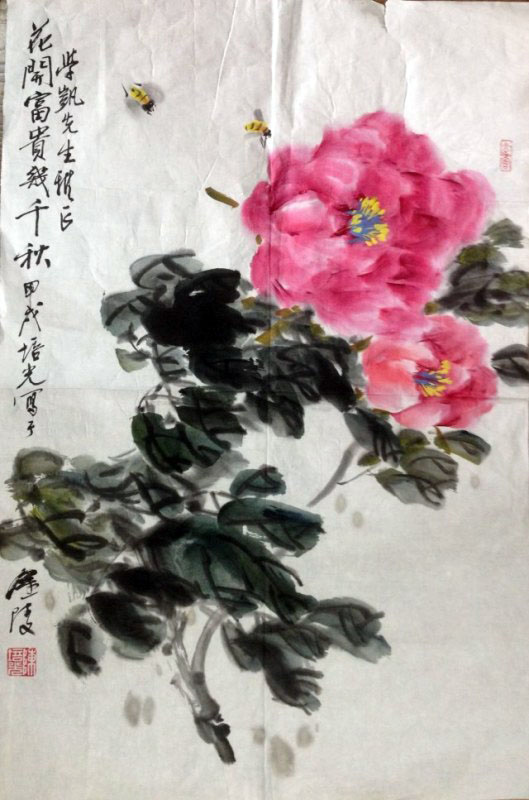 柴凱先生雅正
花開富貴幾千秋 甲戌培光寫于
金陵